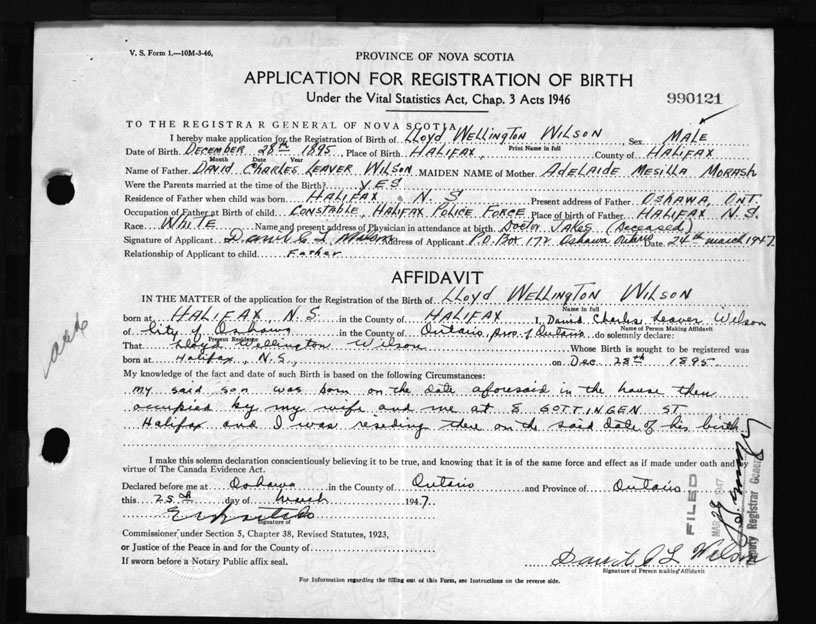 V. S. Form 1.—10M-3-46.
PROVINCE OF NOVA SCOTIA
APPLICATION FOR REGISTRATION OF BIRTH
Under the Vital Statistics Act, Chap. 3 Acts 1946
990121
TO THE REGISTRAR GENERAL OF NOVA SCOTIA
I hereby make application for the Registration of Birth of Lloyd Wellington Wilson Sex MALE
Print Name in full
Date of Birth December 28th 1895, Place of Birth HALIFAX, County of HALIFAX
Month Date Year
Name of Father DAVID CHARLES LEAVER WILSON MAIDEN NAME of Mother ADELAIDE MESILLA MORASH
Were the Parents married at the time of the Birth? YES
Residence of Father when child was born HALIFAX N.S Present address of Father OSHAWA, ONT.
Occupation of Father at Birth of child CONSTABLE, HALIFAX POLICE FORCE Place of birth of Father HALIFAX N.S.
Race WHITE Name and present address of Physician in attendance at birth Doctor JAKES (Deceased)
Signature of Applicant David C L Wilson Address of Applicant P.O. Box 172 Oshawa Ontario Date 24th march 1947.
Relationship of Applicant to child Father
AFFIDAVIT
IN THE MATTER of the application for the Registration of the Birth of Lloyd Wellington Wilson
Name in full
born at HALIFAX, N.S. in the County of HALIFAX I, David Charles Leaver Wilson
Name of Person Making Affidavit
of City of Oshawa in the County of Ontario, Prov. of Ontario do solemnly declare:
Present Residence
That Lloyd Wellington Wilson Whose Birth is sought to be registered was
born at Halifax, N.S., on Dec. 28th 1895
My knowledge of the fact and date of such Birth is Based on the following Circumstances:
my said son was born on the date aforesaid in the house then
occupied by my wife and me at GOTTINGEN ST
Halifax and I was reseding there on the said date of his birth
I make this solemn declaration conscientiously believing it to be true, and knowing that it is of the same force and effect as if made under oath and by
virtue of The Canada Evidence Act.
Declared before me at Oshawa in the County of Ontario and Province of Ontario
this 25th day of March 1947.
Signature of
Commissioner under Section 5, Chapter 38, Revised Statutes, 1923,
or Justice of the Peace in and for the County of
If sworn before a Notary Public affix seal.
David C L Wilson
Signature of Person making Affidavit
For Information regarding the filling out of this Form, see Instructions on the reverse side.
FILED
MAR 1947
Deputy Registrar General